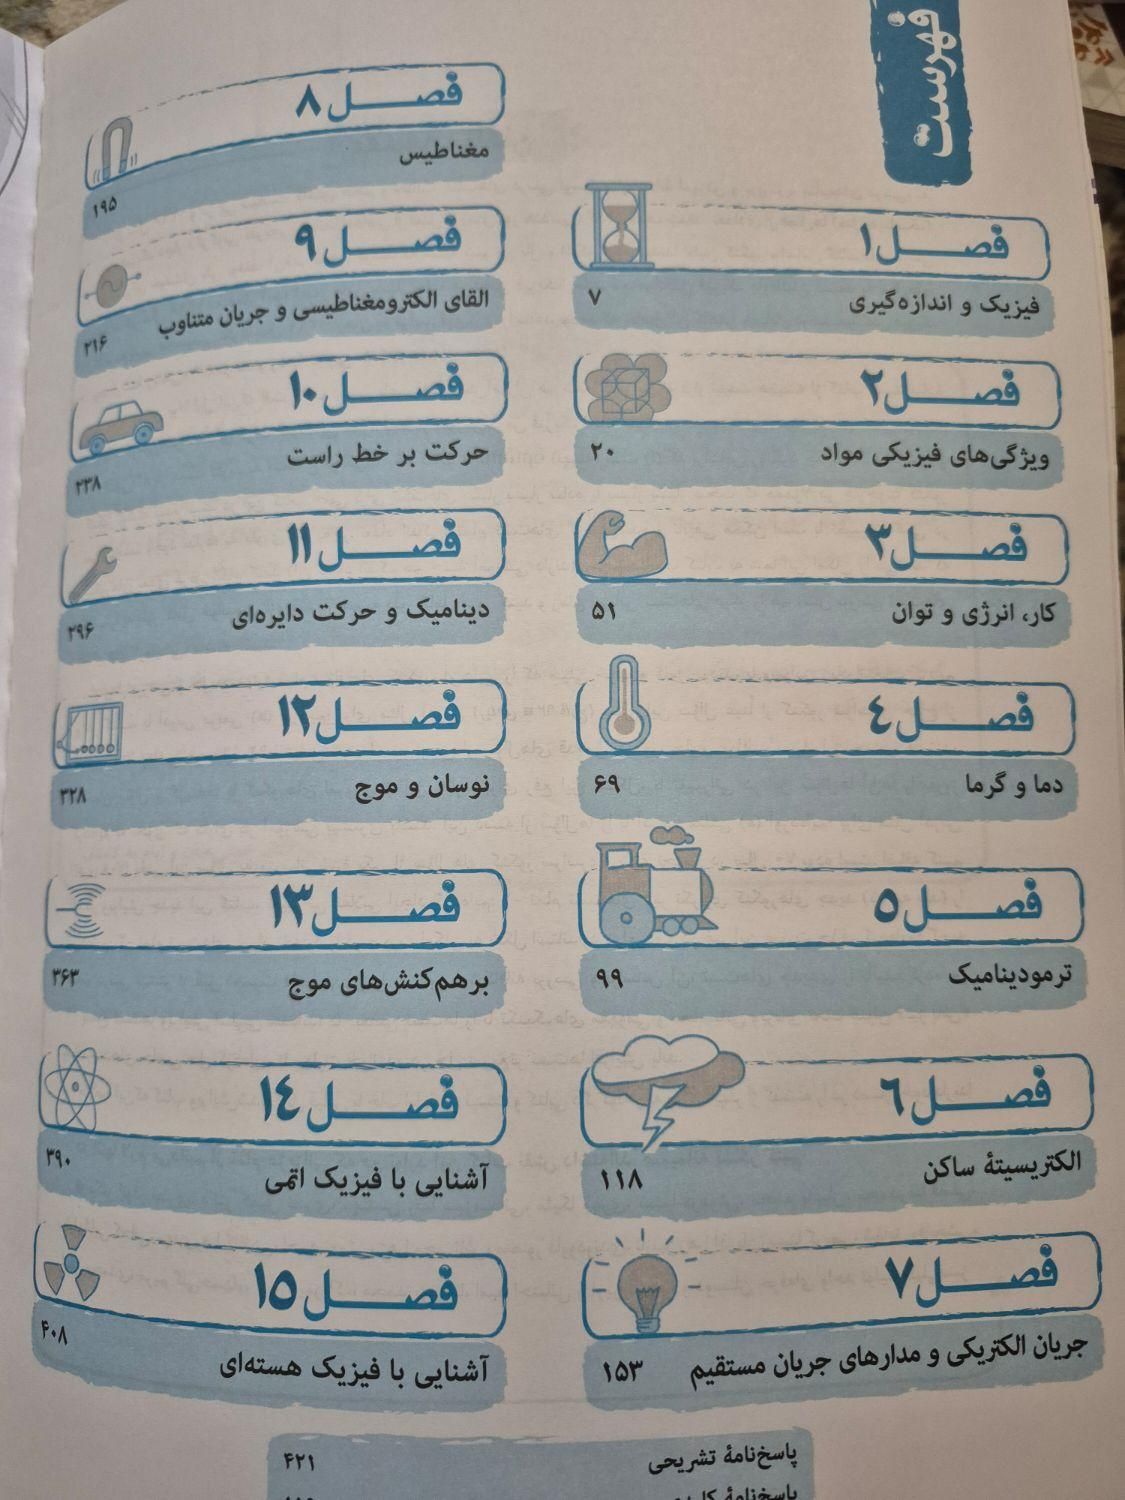 فهرست
فصل ۱
فیزیک و اندازه‌گیری ۷
فصل ۲
ویژگی‌های فیزیکی مواد ۲۰
فصل ۳
کار، انرژی و توان ۵۱
فصل ٤
دما و گرما ۶۹
فصل ۵
ترمودینامیک ۹۹
فصل ۶
الکتریسیتهٔ ساکن ۱۱۸
فصل ۷
جریان الکتریکی و مدارهای جریان مستقیم ۱۵۳
فصل ۸
مغناطیس ۱۹۵
فصل ۹
القای الکترومغناطیسی و جریان متناوب ۲۱۶
فصل ۱۰
حرکت بر خط راست ۲۳۸
فصل ۱۱
دینامیک و حرکت دایره‌ای ۲۹۶
فصل ۱۲
نوسان و موج ۳۲۸
فصل ۱۳
برهم‌کنش‌های موج ۳۶۳
فصل ۱٤
آشنایی با فیزیک اتمی ۳۹۰
فصل ۱۵
آشنایی با فیزیک هسته‌ای ۴۰۸
پاسخ‌نامهٔ تشریحی ۴۲۱
پاسخ‌نامهٔ